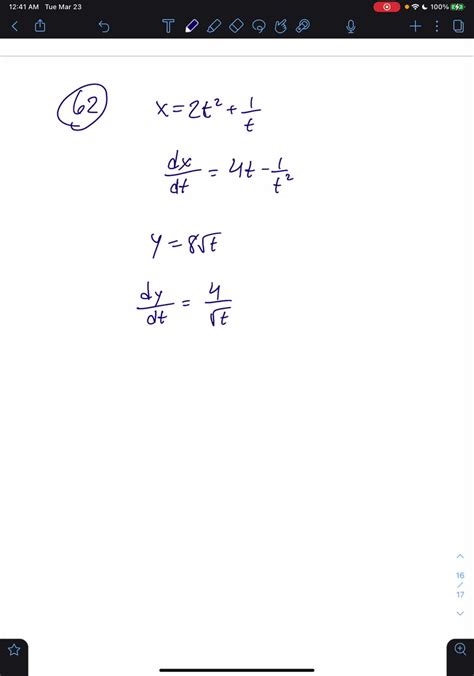 12:41 AM Tue Mar 23
100%
T
62
x = 2t² + 1/t
dx/dt = 4t - 1/t²
y = 8√t
dy/dt = 4/√t
16
/
17